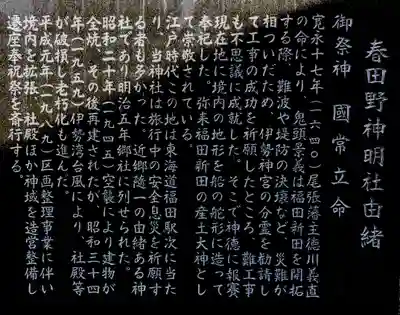 春田野神明社由緒
御祭神　國常立命
寛永十七年(一六四〇)尾張藩主徳川義直
の命により、鬼頭景義は福田新田を開拓
する際、難波や堤防の決壊など、災難が
相ついだため、伊勢神宮の分霊を勧請し
て工事の成功を祈願したところ、難工事
も不思議に成就した。そこで神徳に報賽
現在地に境内の地形を船の舵形に造って
奉祀した。弥来福田新田の産土大神とし
て崇敬されている。
江戸時代この地は東海道福田駅次に当た
り、当神社は旅行中の安全息災を祈願す
る者も多かった。近郷随一の由緒ある神
社であり明治五年郷社に列せられた。
昭和二十年(一九四五)空襲により建物が
全焼、その後再建されたが、昭和三十四
年(一九五九)伊勢湾台風により、社殿等
が破損し老朽化も進んだ。
平成元年(一九八九)区画整理事業に伴い
境内を拡張、社殿ほか神域を造営整備し
遷座奉祝祭を斎行する。